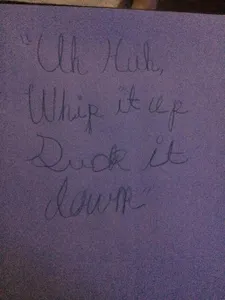 "Uh Huh,
Whip it up
Duck it
down"